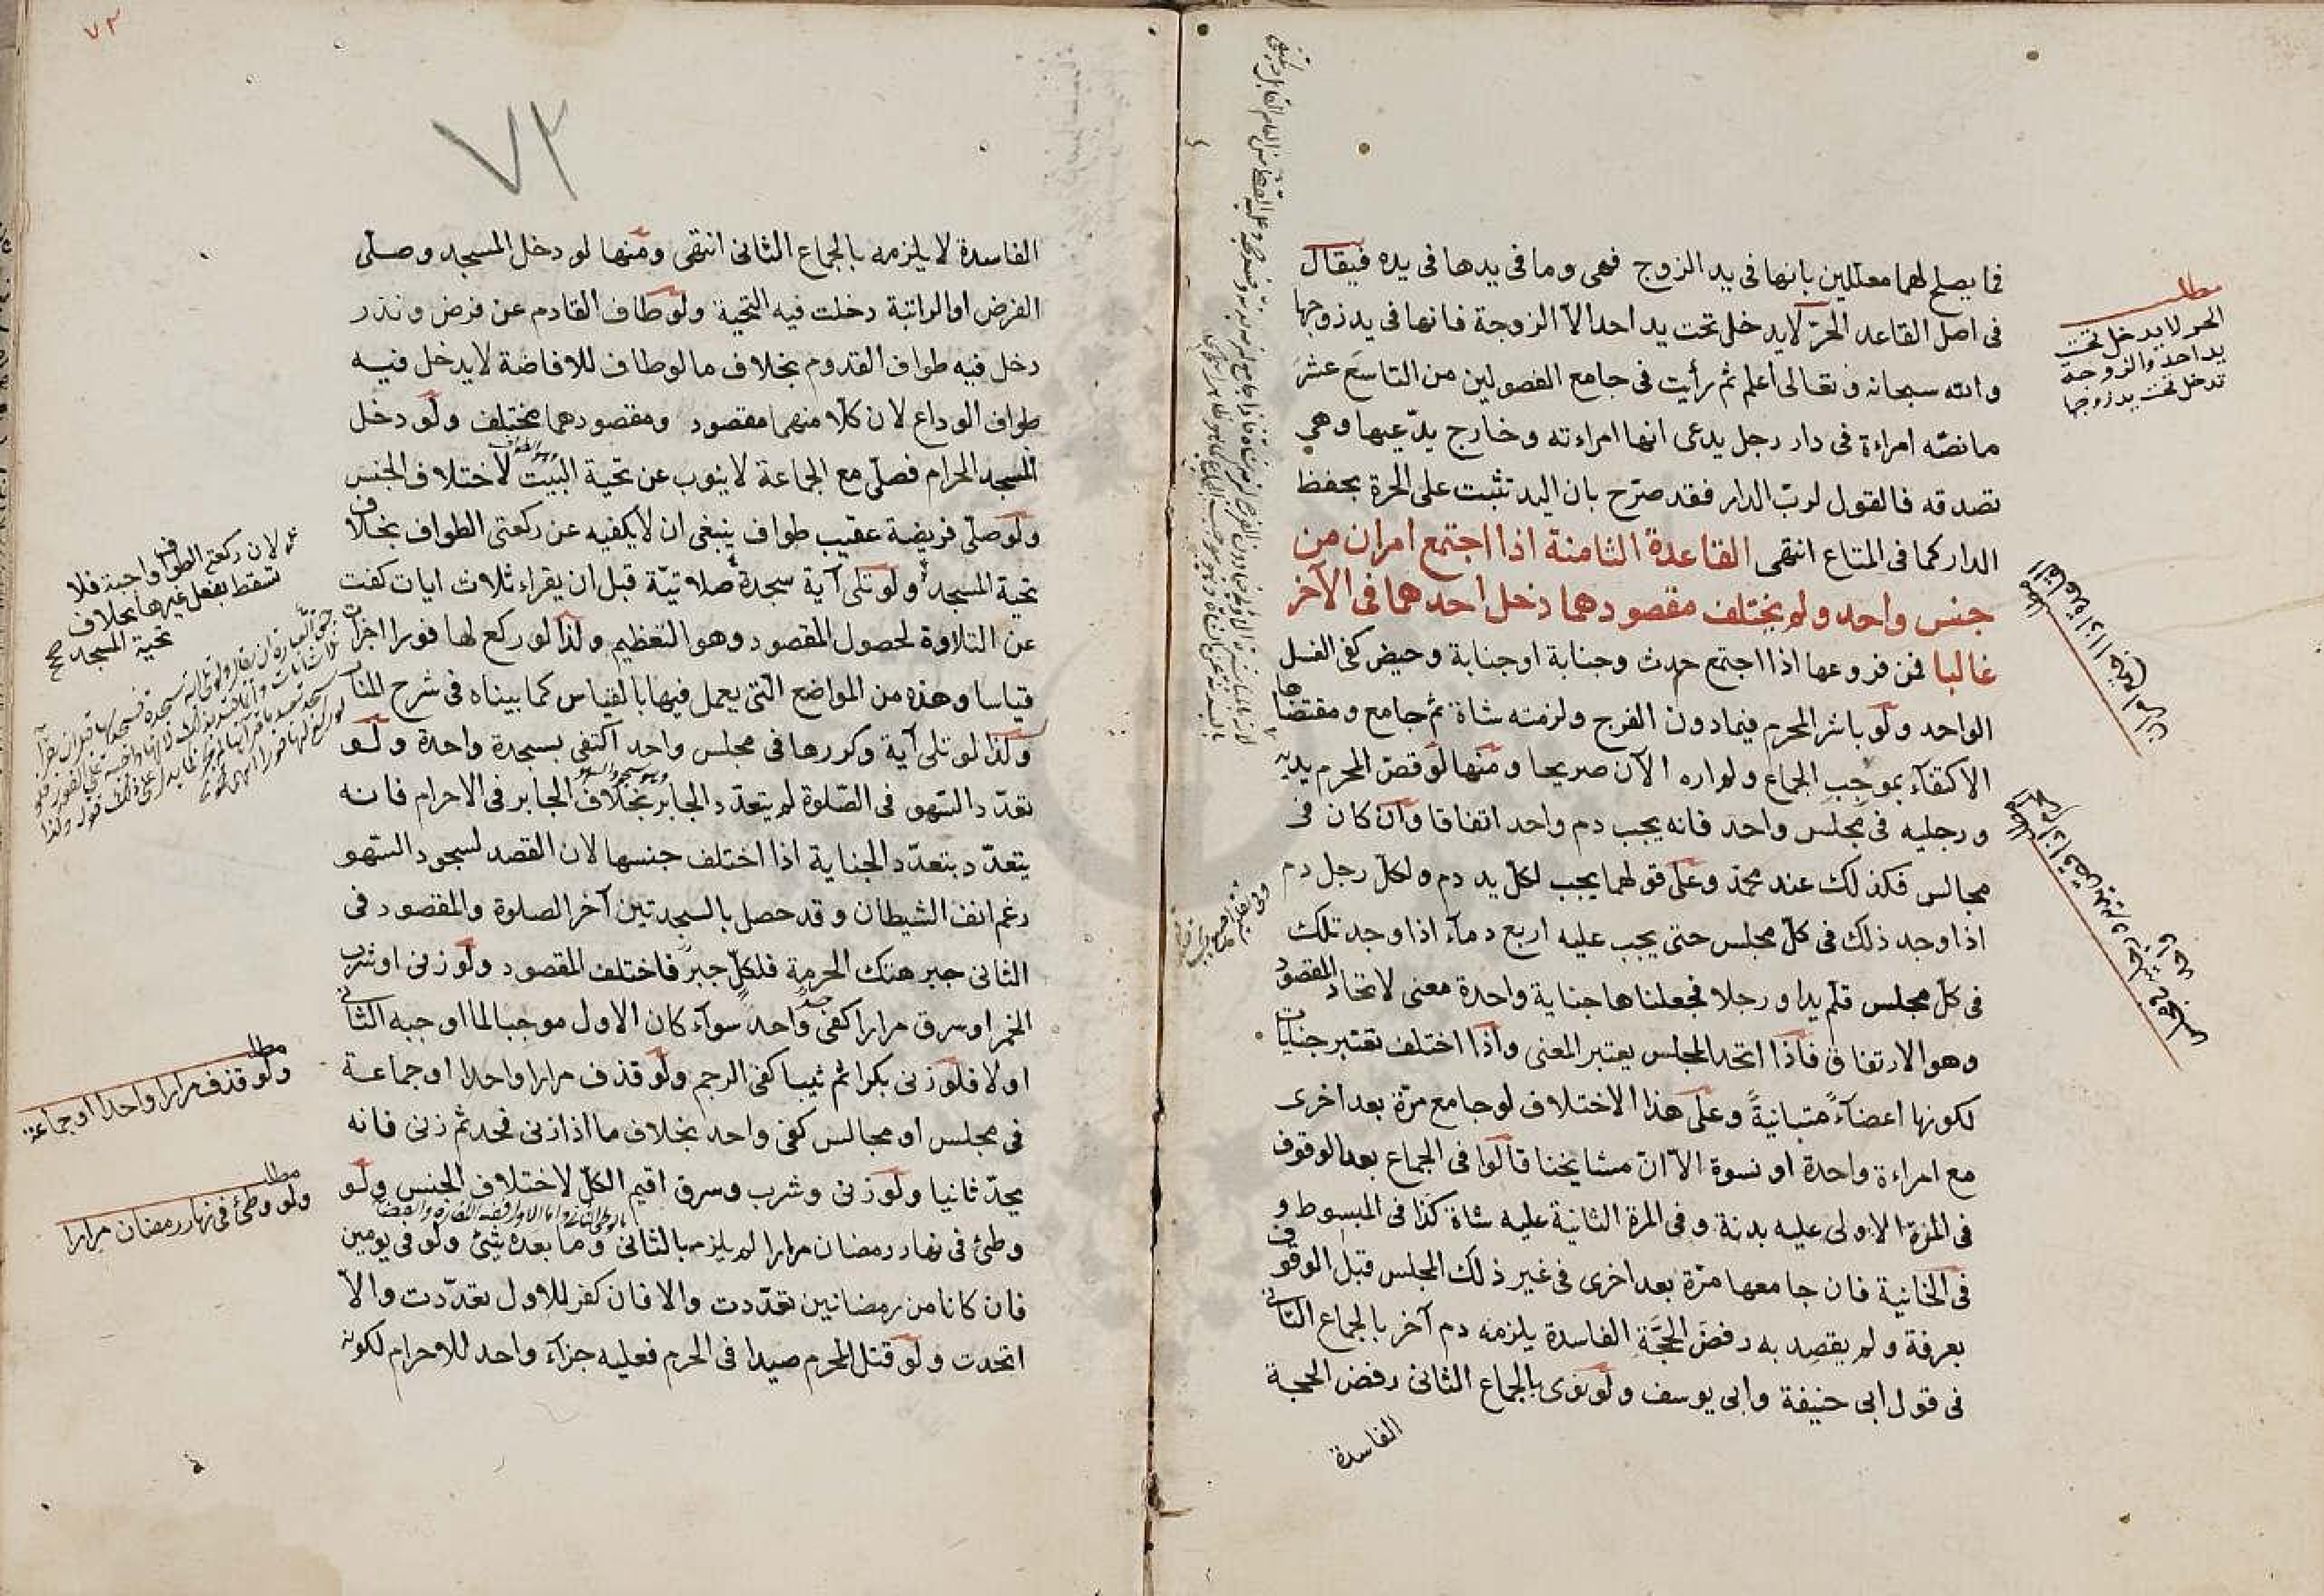 فما يصلح لهما معللين بانها فى يد الزوج فهى وما فى يدها فى يده فيقال
فى اصل القاعدة الحرّ لا يدخل تحت يد احد الّا الزوجة فانها فى يد زوجها
والله سبحانه وتعالى اعلم ثم رأيت فى جامع الفصولين من التاسع عشر
ما نصّه امراءة فى دار رجل يدعى انها امراءته وخارج يدّعيها وهى
تصدقه فالقول لربّ الدار فقد صرّح بان اليد تثبت على الحرة بحفظ
الدار كما فى المتاع انتهى القاعدة الثامنة اذا اجتمع امران من
جنس واحد ولم يختلف مقصودهما دخل احدهما فى الآخر
غالبا فمن فروعها اذا اجتمع حدث وجنابة او جنابة وحيض كفى الغسل
الواحد ولو باشر المحرم فيمادون الفرج ولزمته شاة ثم جامع ومقتضاها
الاكتفآء بموجب الجماع ولم اره الآن صريحا ومنها لو قصّ المحرم يديه
ورجليه فى مجلس واحد فانه يجب دم واحد اتفاقا وان كان فى
مجالس فكذلك عند محمّد وعلى قولهما يجب لكلّ يد دم ولكلّ رجل دم
اذا وجد ذلك فى كلّ مجلس حتى يجب عليه اربع دمآء اذا وجد تلك
فى كلّ مجلس قلم يد او رجل فجعلناها جناية واحدة معنى لاتحاد المقصود
وهو الارتفاق فاذا اتحد المجلس يعتبر المعنى واذا اختلف تعتبر جنايات
لكونها اعضآءً متباينةً وعلى هذا الاختلاف لو جامع مرّة بعد اخرى
مع امراءة واحدة او نسوة الّا انّ مشايخنا قالوا فى الجماع بعد الوقوف
فى المرّة الاولى عليه بدنة وفى المرة الثانية عليه شاة كذا فى المبسوط و
فى الخانية فان جامعها مرّة بعد اخرى فى غير ذلك المجلس قبل الوقوف
بعرفة ولم يقصد به رفض الحجّة الفاسدة يلزمه دم آخر بالجماع الثانى
فى قول ابى حنيفة وابى يوسف ولو نوى بالجماع الثانى رفض الحجة
الفاسدة
مطلب
الحر لا يدخل تحت
يد احد والزوجة
تدخل تحت يد زوجها
٧٢
٧٢
الفاسدة لا يلزمه بالجماع الثانى انتهى ومنها لو دخل المسجد وصلّى
الفرض او الراتبة دخلت فيه التحية ولو طاف القادم عن فرض ونذر
دخل فيه طواف القدوم بخلاف ما لو طاف للافاضة لا يدخل فيه
طواف الوداع لان كلّا منهما مقصود ومقصودهما مختلف ولو دخل
المسجد الحرام فصلّى مع الجماعة لا ينوب عن تحية البيت لاختلاف الجنس
وهو الطواف
ولو صلّى فريضة عقيب طواف ينبغى ان لا يكفيه عن ركعتى الطواف بخلاف
تحية المسجد ولو تلى آية سجدة صلاتيّة قبل ان يقراء ثلاث ايات كفت
عن التلاوة لحصول المقصود وهو التعظيم ولذا لو ركع لها فورا اجزات
قياسا وهذه من المواضع التى يعمل فيها بالقياس كما بيناه فى شرح المنار
وكذا لو تلى آية وكررها فى مجلس واحد اكتفى بسجدة واحدة ولو
تعدّد السّهو فى الصّلوة لم يتعدّد الجابر بخلاف الجابر فى الاحرام فانه
وهو سجود السهو
يتعدّد بتعدّد الجناية اذا اختلف جنسها لان القصد لسجود السّهو
رغم انف الشيطان وقد حصل بالسجدتين آخر الصلوة والمقصود فى
الثانى جبر هتك الحرمة فلكلّ جبر فاختلف المقصود ولو زنى او شرب
الخمر او سرق مرارا كفى حدّ واحد سوآء كان الاول موجبا لما اوجبه الثانى
اولا فلو زنى بكرا ثم ثيبا كفى الرجم ولو قذف مرارا واحدا او جماعة
فى مجلس او مجالس كفى واحد بخلاف ما اذا زنى فحد ثم زنى فانه
يحدّ ثانيا ولو زنى وشرب وسرق اقيم الكلّ لاختلاف الجنس ولو
وطئ فى نهار رمضان مرارا لم يلزمه بالثانى وما بعده شئ ولو فى يومين
فان كانا من رمضانين تعدّدت والا فان كفر للاول تعدّدت والّا
اتحدت ولو قتل المحرم صيدا فى الحرم فعليه جزآء واحد للاحرام لكونه
لان ركعتى الطواف واجبة فلا
تسقط بفعل غيرها بخلاف
تحية المسجد صح
مطلب
ولو قذف مرارا واحدا او جماعة
مطلب
ولو وطئ فى نهار رمضان مرارا